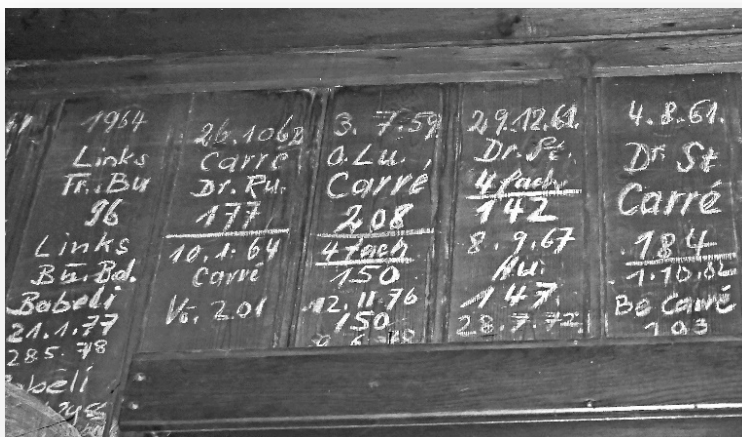 1964
Links
Fr. Bu
96
Links
Bü. Bd.
Babeli
21.1.77
28.5.78
Babeli
26.1062
Carré
Dr. Ru.
177
10.1.64
Carré
Vo. 201
3.7.59
O. Lu.
Carré
208
4fach
150
12.11.76
150
29.12.61.
Dr. St.
4fach
142
8.9.67
Hu.
147.
28.7.72.
4.8.61.
Dr St
Carré
184
1.10.82
Be Carré
193